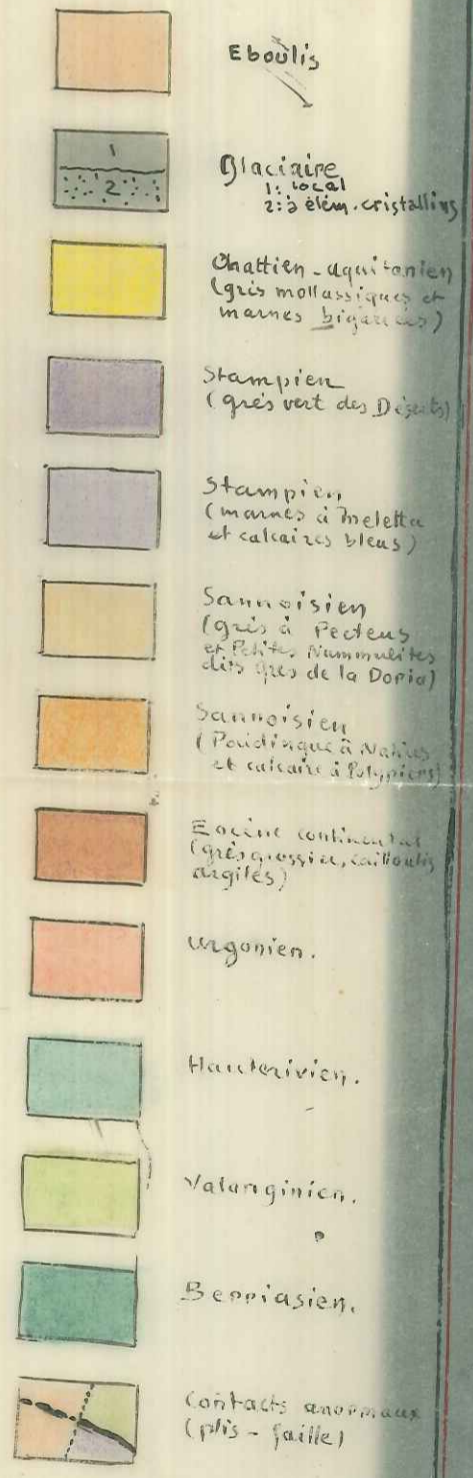 Eboulis
1
2
Glaciaire
1: local
2: à élém. cristallins
Chattien - aquitanien
(grès mollassiques et
marnes bigarrées)
Stampien
(grès vert des Déserts)
Stampien
(marnes à meletta
et calcaires bleus)
Sannoisien
(grès à Pectens
et Petites Nummulites
dits grès de la Doria)
Sannoisien
(Poudingue à Natices
et calcaire à Polypiers)
Eocène continental
(grès grossier, cailloutis
argiles)
Urgonien.
Hauterivien.
Valanginien.
Berriasien.
Contacts anormaux
(plis - faille)